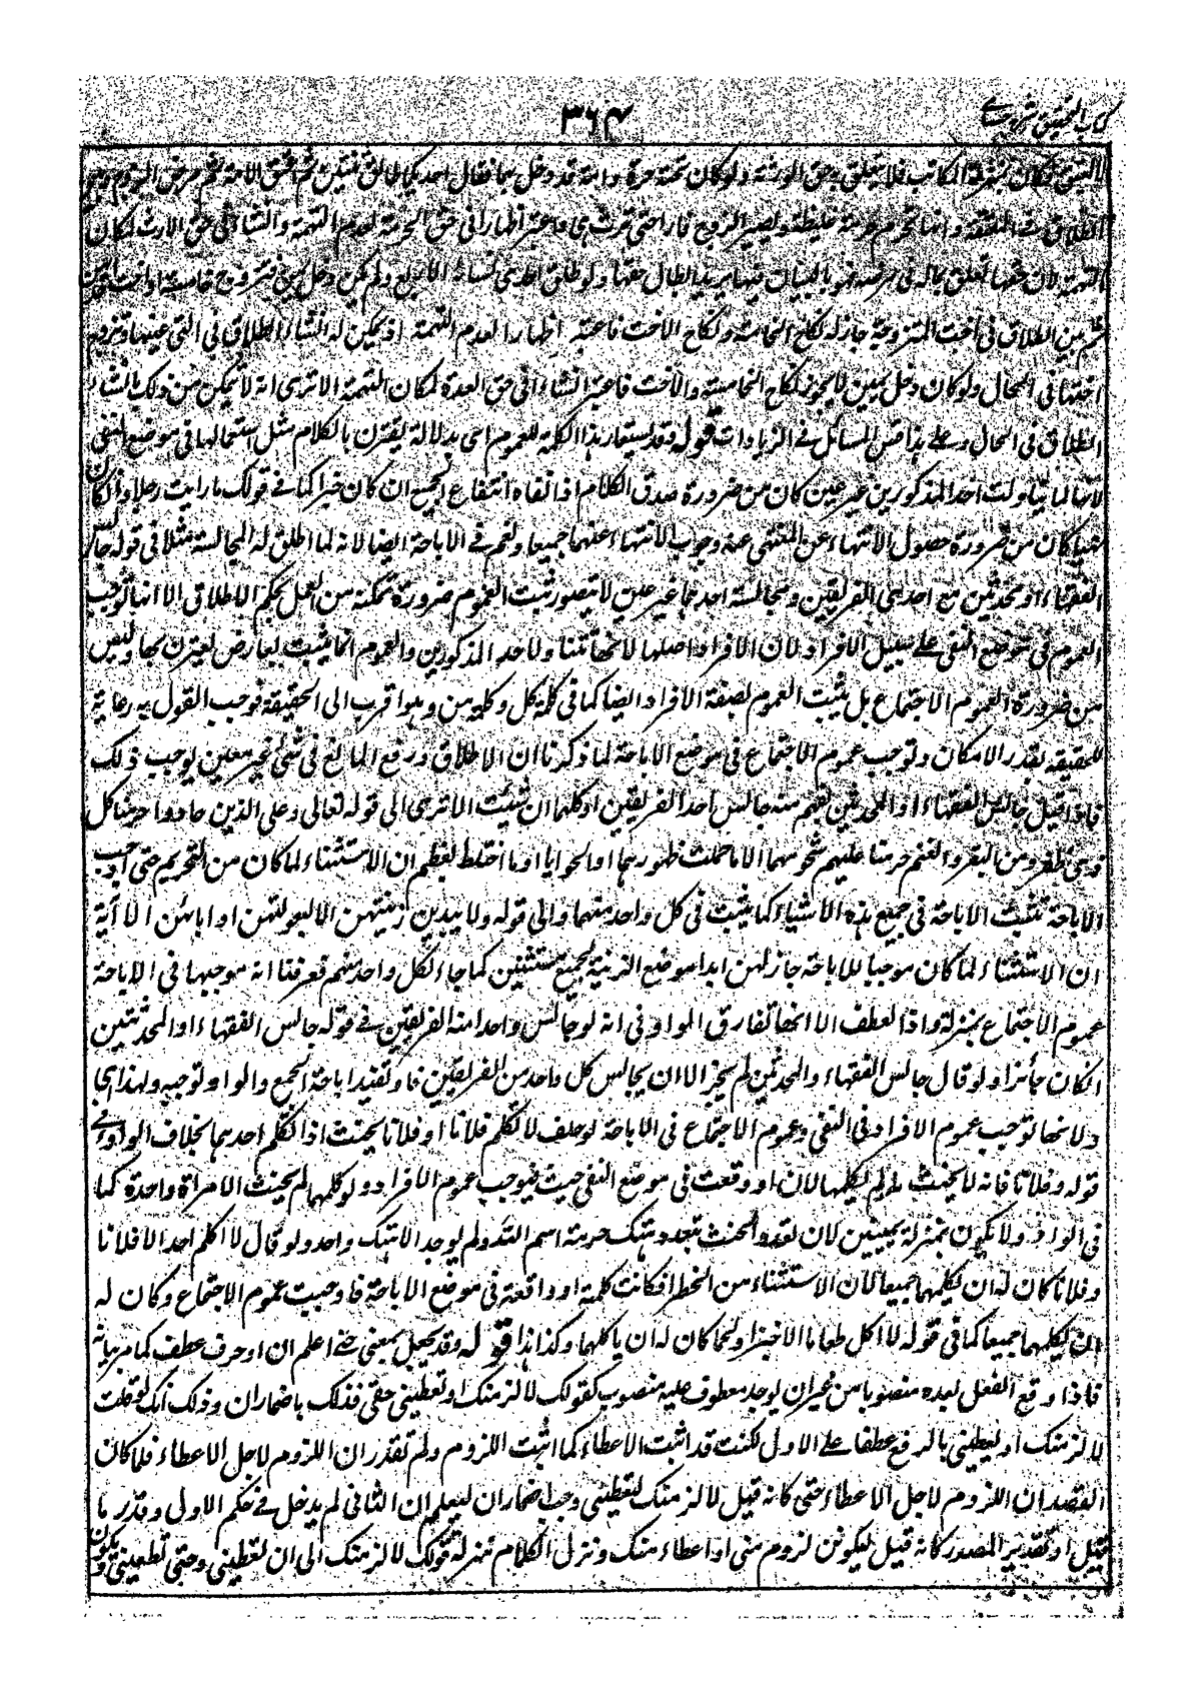 ٣٦٤
كتاب التحقيق شرح
الطلاق في المعتقة وانها تحرم حرمة غليظة ويصير الزوج فارا حتى ترث هي واعتبر اظهارا في حق الحرمة لعدم التهمة وانشاء في حق الارث لمكان
التهمة لان حقها تعلق بماله في مرضه فهو بالبيان فيها يريد ابطال حقها ولو طلق احدى نسائه الاربع ولم يكن دخل بهن فتزوج خامسة او اخت
بين الطلاق في اخت المتزوجة جاز له نكاح الخامسة ونكاح الاخت فاعتبر اظهارا لعدم التهمة اذ يمكن له انشاء الطلاق في التي عينها وتزوج
اختها في الحال ولو كان دخل بهن لا يجوز نكاح الخامسة والاخت فاعتبر انشاء في حق العدة لمكان التهمة الا ترى انه لا يمكن من ذلك بانشاء
الطلاق في الحال وعلى هذا قس المسائل في الزيادات قوله وقد يستعار هذه الكلمة للعموم اى بدلالة يقترن بالكلام مثل استعمالها في موضع النفي
لانها لما تناولت احد المذكورين غير عين كان من ضرورة صدق الكلام اذا نفاه انتفاع الجميع ان كان خبرا كما في قولك ما رايت رجلا وان كان
نهيا كان من ضرورة حصول الانتهاء عن المنهي عنه وجوب الانتهاء عنهما جميعا ولعم في الاباحة ايضا لانه لما اطلق له المجالسة مثلا في قوله جالس
الفقهاء او المحدثين مع احدى الفريقين ومجالسة احدهما غير عين لا يتصور ثبت العموم ضرورة تمكنه من العمل بحكم الاطلاق الا انها توجب
العموم في موضع النفي على سبيل الافراد لان الافراد اصلها لانها تتناولا احد المذكورين والعموم انما يثبت لعارض يقترن بها وليس
من ضرورة العموم الاجتماع بل يثبت العموم بصفة الافراد ايضا كما في كلمة كل وكلمة من وهو اقرب الى الحقيقة فوجب القول به رعاية
للحقيقة بقدر الامكان وتوجب عموم الاجتماع في موضع الاباحة لما ذكرنا ان الاطلاق ورفع المانع في شئ غير معين يوجب ذلك
فاذا قيل جالس الفقهاء او المحدثين يفهم منه جالس احد الفريقين او كلهما ان شئت الا ترى الى قوله تعالى وعلى الذين هادوا حرمنا كل
ذي ظفر ومن البقر والغنم حرمنا عليهم شحومهما الا ما حملت ظهورهما او الحوايا او ما اختلط بعظم ان الاستثناء لما كان من التحريم حتى اوجب
الاباحة تثبت الاباحة في جميع هذه الاشياء كما يثبت في كل واحد منهما والى قوله ولا يبدين زينتهن الا لبعولتهن او ابائهن الاآية
ان الاستثناء لما كان موجبا للاباحة جاز لهن ابدا موضع الزينة لجميع مستثنين كما جاء لكل واحد منهم فعرفنا انه موجبها في الاباحة
عموم الاجتماع بمنزلة واو العطف الا انها تفارق الواو في انه لو جالس واحدا منه الفريقين في قوله جالس الفقهاء او المحدثين
كان جائزا ولو قال جالس الفقهاء والمحدثين لم يجز الا ان يجالس كل واحد من الفريقين فاو تفيد اباحة الجمع والواو توجبه ولهذا اى
ولانها توجب عموم الافراد في النفي وعموم الاجتماع في الاباحة لو حلف لا تكلم فلانا او فلانا يحنث اذا تكلم احدهما بخلاف الواو في
قوله وفلانا فانه لا يحنث ما لم يكلمهما لان او وقعت في موضع النفي حيث فيوجب عموم الافراد ولو كلمهما لم يحنث الا مرة واحدة كما
في الواو ولا يكون بمنزلة يمينين لان تعدد الحنث بتعدد هتك حرمة اسم الله ولم يوجد الا هتك واحد ولو قال لا اكلم احدا الا فلانا
وفلانا كان له ان يكلمهما جميعا لان الاستثناء من الحظر فكانت كلمة او واقعة في موضع الاباحة فاوجبت عموم الاجتماع وكان له
ان يكلمهما جميعا كما في قوله لا اكل طعاما الا خبزا ولحما كان له ان ياكلهما وكذا هذا قوله وقد يجعل بمعنى حتى اعلم ان او حرف عطف كما مر بيانه
فاذا وقع الفعل بعده منصوبا من غير ان يوجد معطوف عليه منصوب كقولك لالزمنك او تعطيني حقي فذلك باضمار ان وذلك انك لو قلت
لالزمنك او تعطيني بالرفع عطفا على الاول لكنت قد اثبت الاعطاء كما اثبت اللزوم ولم تقدر ان اللزوم لاجل الاعطاء فلما كان
القصد ان اللزوم لاجل الاعطاء حتى كانه قيل لالزمنك لتعطيني وجب اضمار ان ليعلم ان الثاني لم يدخل في حكم الاول وقدر ما
قبل او تقدير المصدر كانه قيل ليكونن لزوم مني او اعطاء منك ونزل الكلام منزلة قولك لالزمنك الى ان تعطيني وحتى تعطيني ويكون